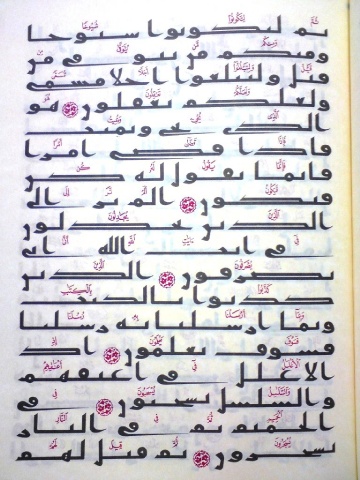 ثم لتكونوا شيوخا
ومنكم من يتوفى من
قبل ولتبلغوا اجلا مسمى
ولعلكم تعقلون هو
الذي يحي ويميت
فاذا قضى امرا
فانما يقول له كن
فيكون الم تر الى
الذين يجدلون
في ايت الله انى
يصرفون الذين
كذبوا بالكتب
وبما ارسلنا به رسلنا
فسوف يعلمون اذ
الاغلل في اعنقهم
والسلسل يسحبون في
الحميم ثم في النار
يسجرون ثم قيل لهم